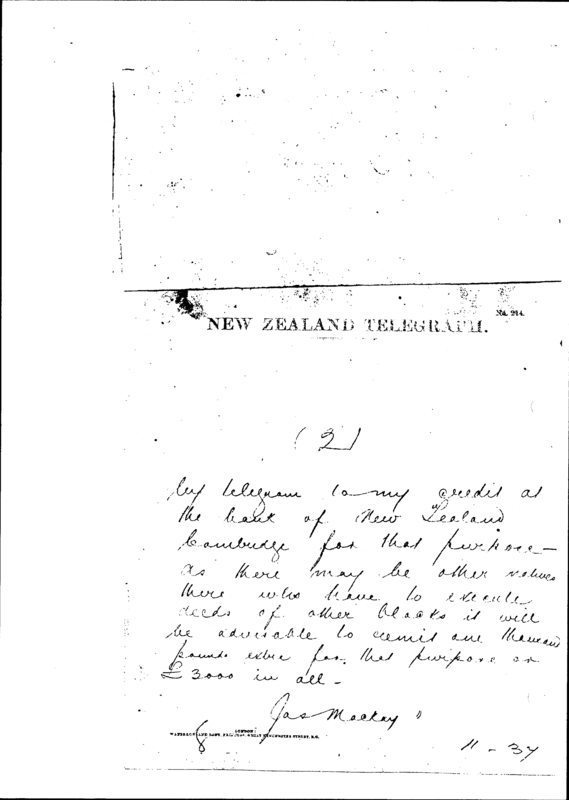 No. 214.
NEW ZEALAND TELEGRAPH.
(2)
by telegram to my credit at
the bank of New Zealand
Cambridge for that purpose —
as there may be other natives
there who have to execute
deeds of other blocks it will
be advisable to remit one thousand
pounds extra for that purpose or
£3000 in all —
Jas Mackay
LONDON
WATERLOW AND SONS, GREAT WINCHESTER STREET, E.C.
8
11 - 37